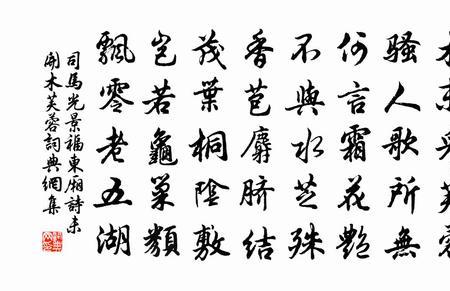 騷人歌所無
何言霜花艷
不與水芝殊
香苞麝臍結
茂葉桐陰敷
豈若龜巢類
飄零老五湖
司馬光景福東廂詩未
開木芙蓉詞典網集